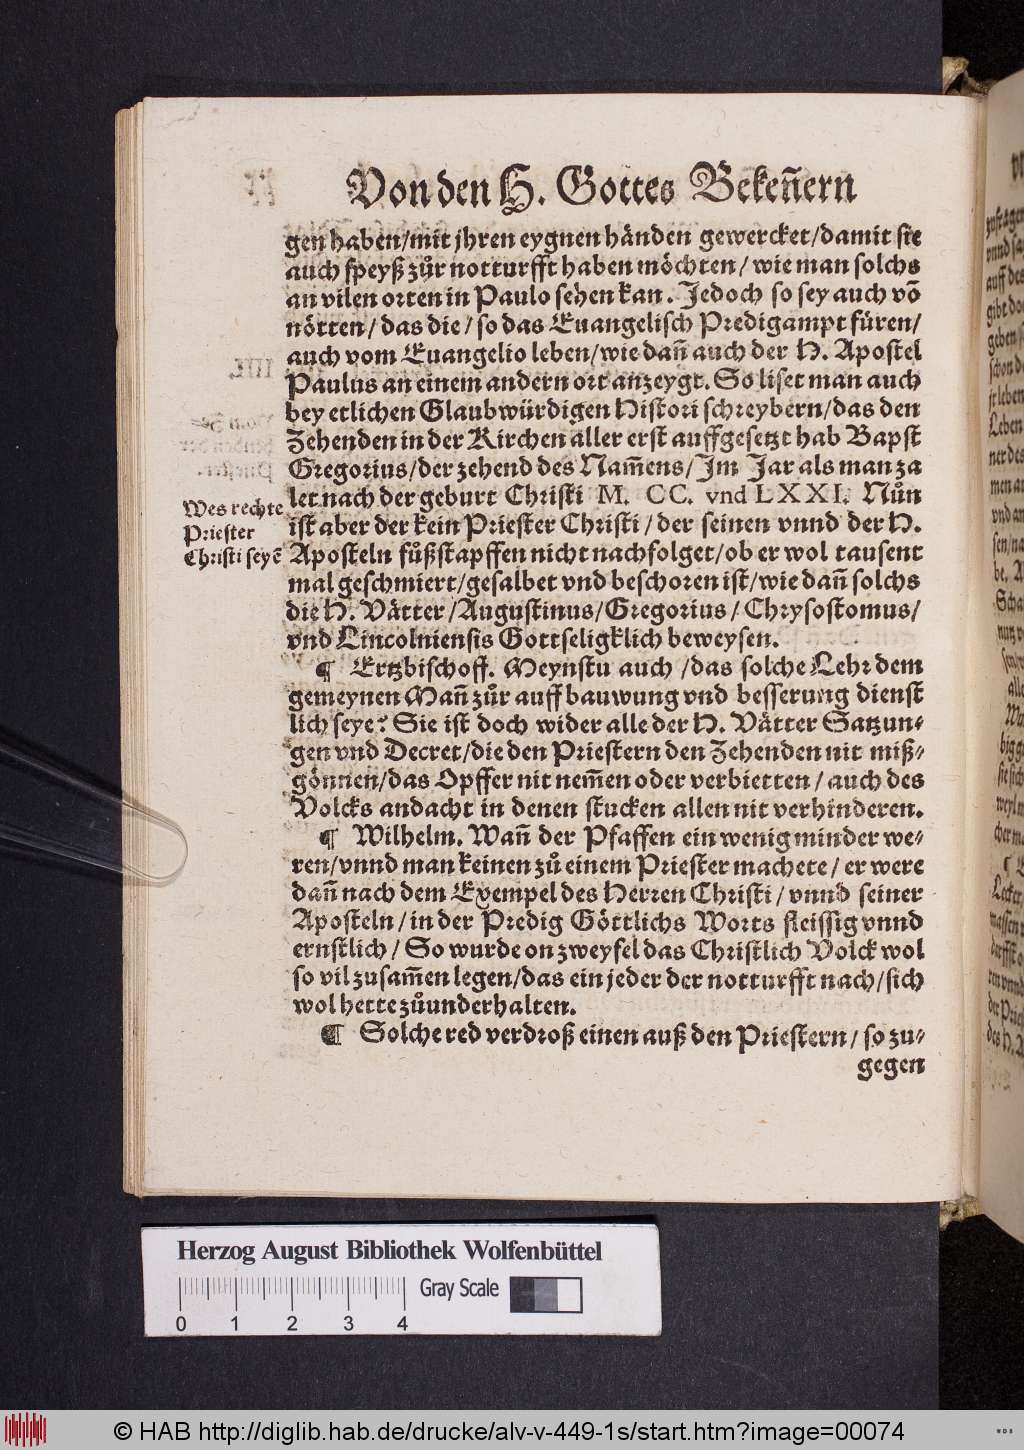 Von den H. Gottes Bekeñern
gen haben/mit jhren eygnen händen gewercket/damit sie
auch speyß zůr notturfft haben möchten/ wie man solchs
an vilen orten in Paulo sehen kan. Jedoch so sey auch võ
nötten/ das die/ so das Euangelisch Predigampt füren/
auch vom Euangelio leben/wie dañ auch der H. Apostel
Paulus an einem andern ort anzeygt. So liset man auch
bey etlichen Glaubwürdigen Histori schreybern/das den
Zehenden in der Kirchen aller erst auffgesetzt hab Bapst
Gregorius/der zehend des Nam̃ens/ Jm Jar als man za
let nach der geburt Christi M. CC. vnd LXXI. Nůn
ist aber der kein Priester Christi/ der seinen vnnd der H.
Aposteln fůßstapffen nicht nachfolget/ob er wol tausent
mal geschmiert/gesalbet vnd beschoren ist/wie dañ solchs
die H. Vätter/Augustinus/Gregorius/ Chrysostomus/
vnd Lincolniensis Gottseligklich beweysen.
Wes rechte
Priester
Christi seyẽ
¶ Ertzbischoff. Meynstu auch/das solche Lehr dem
gemeynen Mañ zůr auff bauwung vnd besserung dienst
lich seye? Sie ist doch wider alle der H. Vätter Satzun-
gen vnd Decret/die den Priestern den Zehenden nit miß-
gönnen/das Opffer nit nem̃en oder verbietten/ auch des
Volcks andacht in denen stucken allen nit verhinderen.
¶ Wilhelm. Wañ der Pfaffen ein wenig minder we-
ren/vnnd man keinen zů einem Priester machete/ er were
dañ nach dem Exempel des Herren Christi/ vnnd seiner
Aposteln/in der Predig Göttlichs Worts fleissig vnnd
ernstlich/ So wurde on zweyfel das Christlich Volck wol
so vil zusam̃en legen/das ein jeder der notturfft nach/sich
wol hette zůunderhalten.
¶ Solche red verdroß einen auß den Priestern/ so zu-
gegen
Herzog August Bibliothek Wolfenbüttel
Gray Scale
0 1 2 3 4
© HAB http://diglib.hab.de/drucke/alv-v-449-1s/start.htm?image=00074